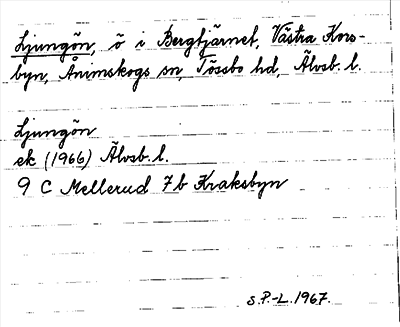 Ljungön, ö i Bergtjärnet, Västra Kors-
byn, Ånimskogs sn, Tössbo hd, Älvsb. l.
Ljungön
ek (1966) Älvsb. l.
9 C Mellerud 7b Kraksbyn
S.P.-L. 1967.